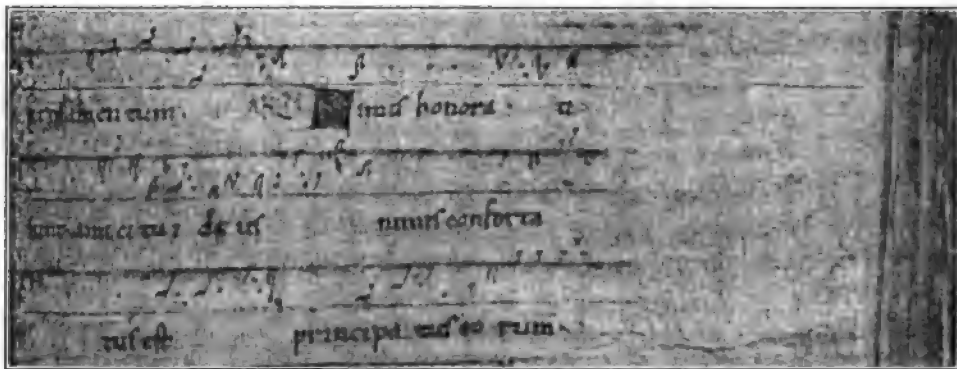 Nimis honora ti
sunt amici tui deus nimis conforta
tus est principa tus eo rum